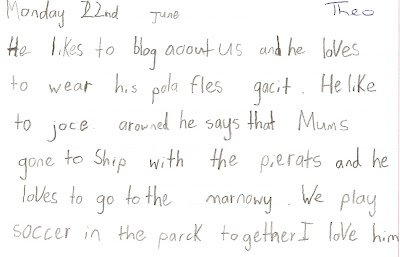 Monday 22nd June Theo
He likes to blog aoout us and he loves
to wear his pola fles gacit. He like
to joce. arowned he says that Mums
gone to Ship with the pierats and he
loves to go to the marnowy. We play
soccer in the parck together I love him